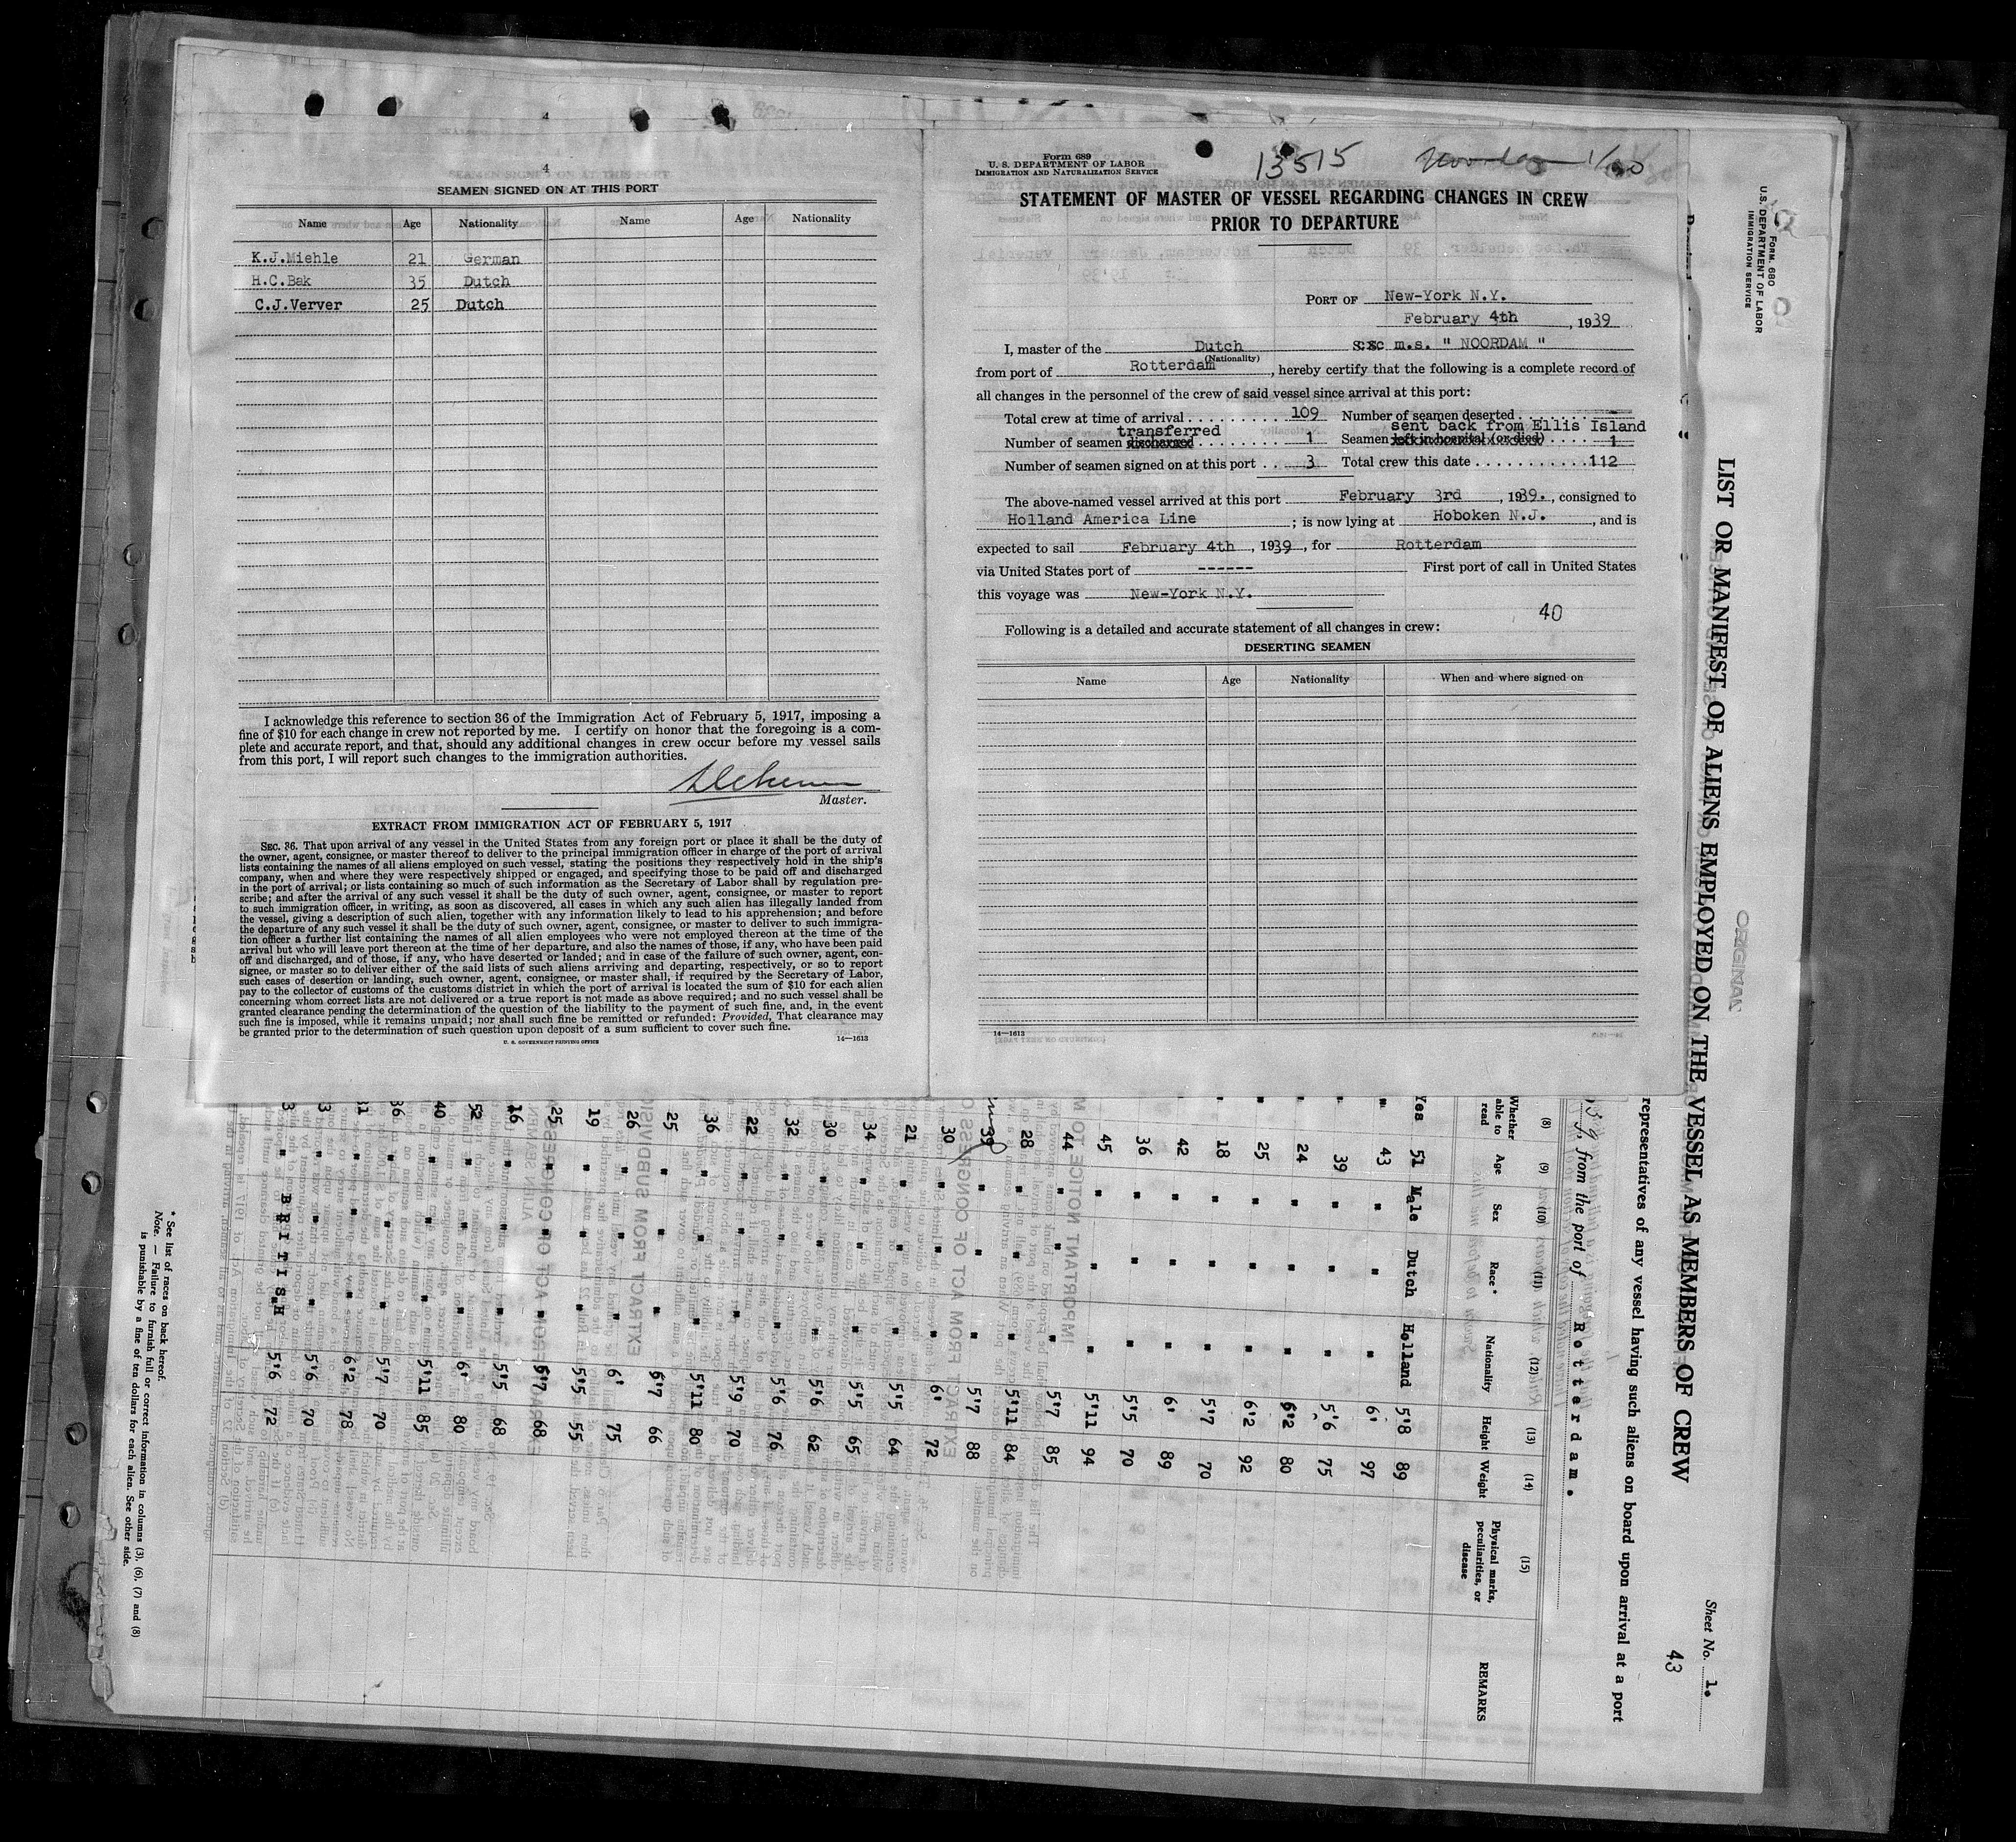 4
SEAMEN SIGNED ON AT THIS PORT
Name Age Nationality Name Age Nationality
K.J.Miehle 21 German
H.C.Bak 35 Dutch
C.J.Verver 25 Dutch
I acknowledge this reference to section 36 of the Immigration Act of February 5, 1917, imposing a
fine of $10 for each change in crew not reported by me. I certify on honor that the foregoing is a com-
plete and accurate report, and that, should any additional changes in crew occur before my vessel sails
from this port, I will report such changes to the immigration authorities.
Master.
EXTRACT FROM IMMIGRATION ACT OF FEBRUARY 5, 1917
SEC. 36. That upon arrival of any vessel in the United States from any foreign port or place it shall be the duty of
the owner, agent, consignee, or master thereof to deliver to the principal immigration officer in charge of the port of arrival
lists containing the names of all aliens employed on such vessel, stating the positions they respectively hold in the ship's
company, when and where they were respectively shipped or engaged, and specifying those to be paid off and discharged
in the port of arrival; or lists containing so much of such information as the Secretary of Labor shall by regulation pre-
scribe; and after the arrival of any such vessel it shall be the duty of such owner, agent, consignee, or master to report
to such immigration officer, in writing, as soon as discovered, all cases in which any such alien has illegally landed from
the vessel, giving a description of such alien, together with any information likely to lead to his apprehension; and before
the departure of any such vessel it shall be the duty of such owner, agent, consignee, or master to deliver to such immigra-
tion officer a further list containing the names of all alien employees who were not employed thereon at the time of the
arrival but who will leave port thereon at the time of her departure, and also the names of those, if any, who have been paid
off and discharged, and of those, if any, who have deserted or landed; and in case of the failure of such owner, agent, con-
signee, or master so to deliver either of the said lists of such aliens arriving and departing, respectively, or so to report
such cases of desertion or landing, such owner, agent, consignee, or master shall, if required by the Secretary of Labor,
pay to the collector of customs of the customs district in which the port of arrival is located the sum of $10 for each alien
concerning whom correct lists are not delivered or a true report is not made as above required; and no such vessel shall be
granted clearance pending the determination of the question of the liability to the payment of such fine, and, in the event
such fine is imposed, while it remains unpaid; nor shall such fine be remitted or refunded: Provided, That clearance may
be granted prior to the determination of such question upon deposit of a sum sufficient to cover such fine.
U. S. GOVERNMENT PRINTING OFFICE 14—1613
Form 689
U. S. DEPARTMENT OF LABOR
IMMIGRATION AND NATURALIZATION SERVICE
13515
STATEMENT OF MASTER OF VESSEL REGARDING CHANGES IN CREW
PRIOR TO DEPARTURE
PORT OF New-York N.Y.
February 4th, 1939
I, master of the Dutch m.s. " NOORDAM "
(Nationality)
from port of Rotterdam, hereby certify that the following is a complete record of
all changes in the personnel of the crew of said vessel since arrival at this port:
Total crew at time of arrival 109 Number of seamen deserted —
transferred sent back from Ellis Island
Number of seamen discharged 1 Seamen left in hospital (or died) 1
Number of seamen signed on at this port 3 Total crew this date 112
The above-named vessel arrived at this port February 3rd, 1939., consigned to
Holland America Line; is now lying at Hoboken N.J., and is
expected to sail February 4th, 1939, for Rotterdam
via United States port of ------ First port of call in United States
this voyage was New-York N.Y.
40
Following is a detailed and accurate statement of all changes in crew:
DESERTING SEAMEN
Name Age Nationality When and where signed on
14—1613
FORM 680
U.S. DEPARTMENT OF LABOR
IMMIGRATION SERVICE
ORIGINAL
LIST OR MANIFEST OF ALIENS EMPLOYED ON THE VESSEL AS MEMBERS OF CREW
Sheet No. 1.
43
representatives of any vessel having such aliens on board upon arrival at a port
39, from the port of Rotterdam.
(8) (9) (10) (11) (12) (13) (14) (15)
Whether able to read Age Sex Race * Nationality Height Weight Physical marks, peculiarities, or disease REMARKS
Yes 51 Male Dutch Holland 5'8 89
" 43 " " " 6' 97
" 39 " " " 5'6 75
" 24 " " " 6'2 80
" 25 " " " 6'2 92
" 18 " " " 5'7 70
" 42 " " " 6' 89
36 " " " 5'5 70
45 " " " 5'11 94
44 " " " 5'7 85
28 " " " 5'11 84
39 " " " 5'7 88
30 " " " 6' 72
21 " " " 5'5 64
34 " " " 5'5 65
30 " " " 5'6 62
32 " " " 5'6 76
22 " " " 5'9 70
36 " " " 5'11 80
25 " " " 6'7 66
26 " " " 6' 75
19 " " " 5'5 55
25 " " " 5'7 68
16 " " " 5'5 68
52 " " " 6' 80
40 " " " 5'11 85
36 " " " 5'7 70
" " " 6'2 78
" " " 5'6 70
" BRITISH 5'6 72
* See list of races on back hereof.
Note. — Failure to furnish full or correct information in columns (3), (6), (7) and (8)
is punishable by a fine of ten dollars for each alien. See other side.